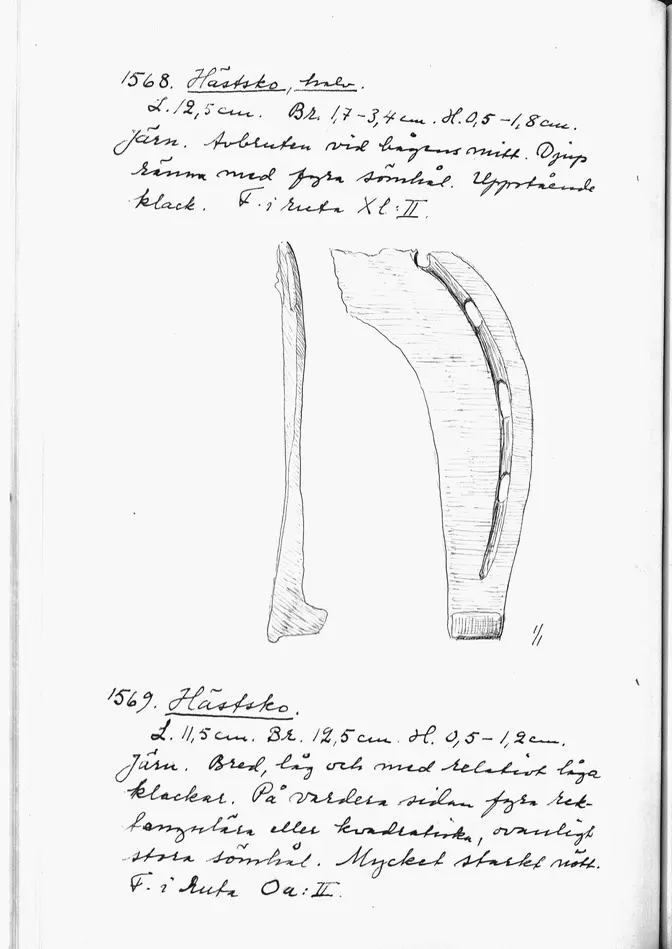 1568. Hästsko, halv.
L. 12,5 cm. Br. 1,7-3,4 cm. H. 0,5-1,8 cm.
Järn. Avbruten vid bågens mitt. Djup
ränna med fyra sömhål. Uppstående
klack. F. i ruta Xl:II.
1/1
1569. Hästsko.
L. 11,5 cm. Br. 12,5 cm. H. 0,5-1,2 cm.
Järn. Bred, låg och med relativt låga
klackar. På vardera sidan fyra rek-
tangulära eller kvadratiska, ovanligt
stora sömhål. Mycket starkt nött.
F. i ruta Oa:II.